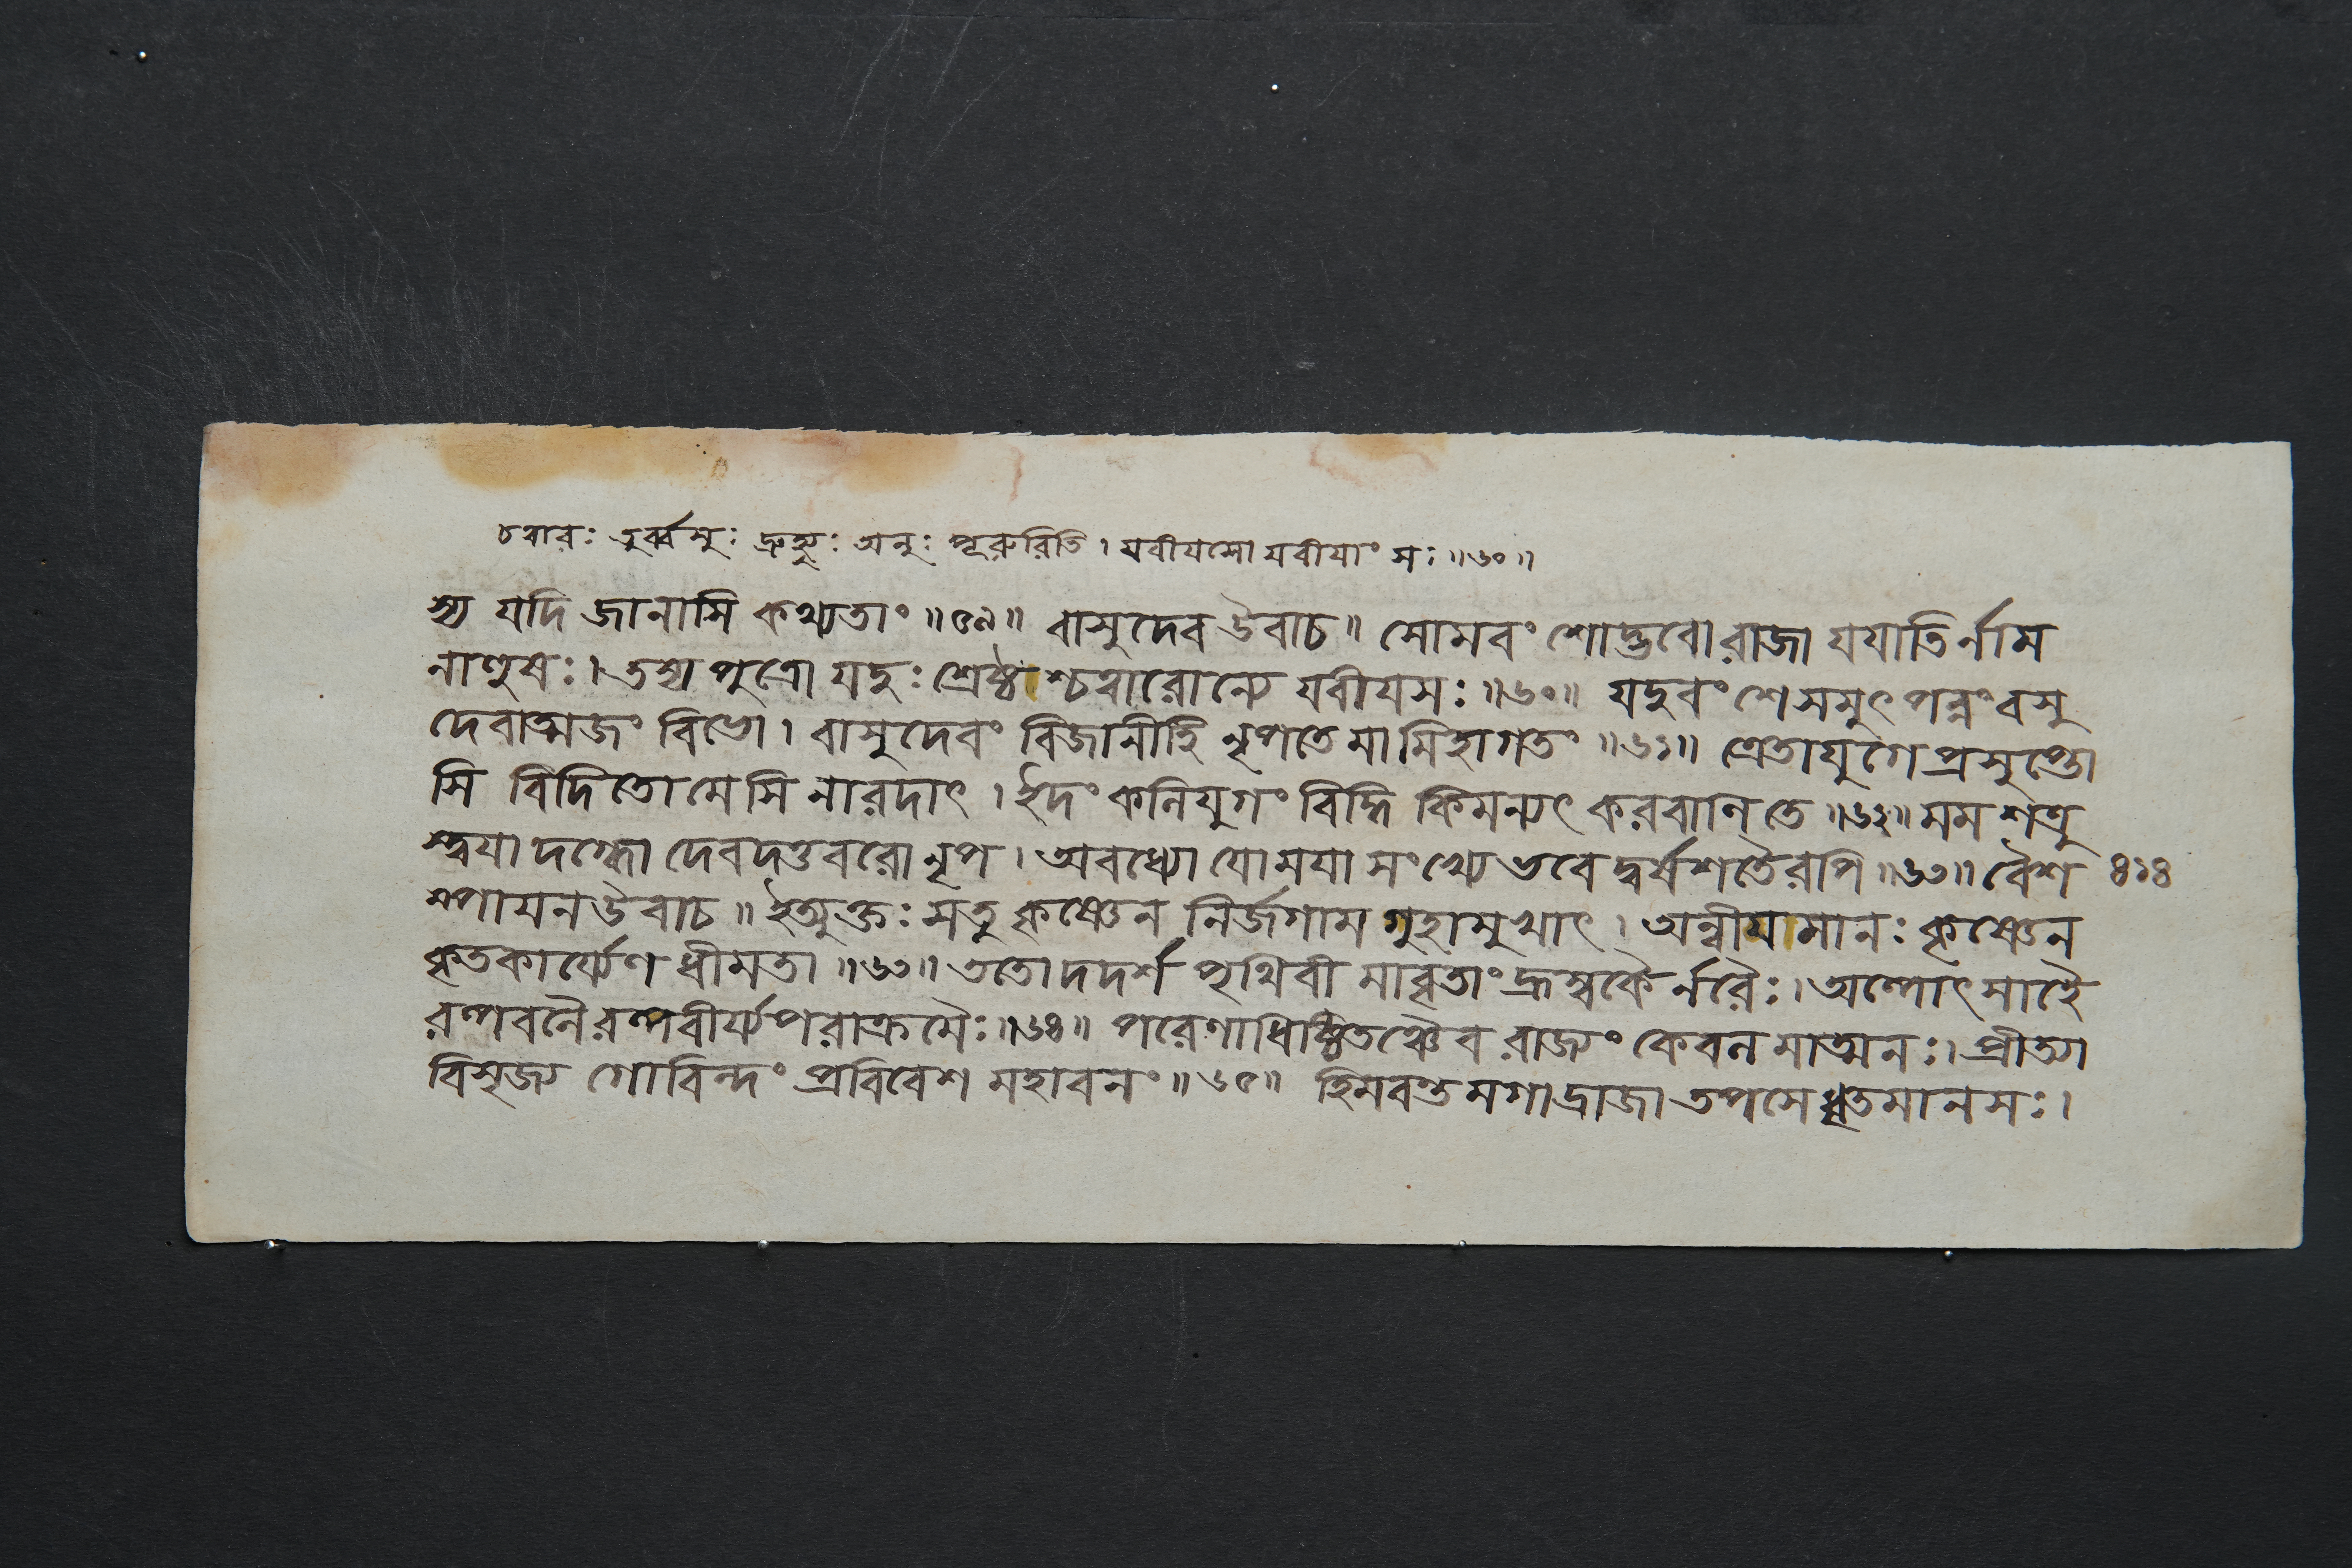 চত্বারঃ তুর্ব্বসুঃ দ্রুহ্যুঃ অনুঃ পূরুরিতি। যবীযসো যবীযাংসঃ॥৬০॥
স্য যদি জানাসি কথ্যতাং॥৫৯॥ বাসুদেব উবাচ॥ সোমবংশোদ্ভবো রাজা যযাতির্নাম
নাহুষঃ। তস্য পুত্রো যদুঃ শ্রেষ্ঠাশ্চত্বারোন্যে যবীযসঃ॥৬০॥ যদুবংশে সমুৎপন্নং বসু
দেবাত্মজং বিভো। বাসুদেবং বিজানীহি নৃপতে মামিহাগতং॥৬১॥ ত্রেতাযুগে প্রসুপ্তো
সি বিদিতো মেসি নারদাৎ। ইদং কলিযুগং বিদ্ধি কিমন্যৎ করবানি তে॥৬২॥ মম শত্রু
স্ত্বযা দগ্ধো দেবদত্তবরো নৃপ। অবধ্যো যো মযা সংখ্যে ভবেদ্বর্ষশতৈরপি॥৬৩॥ বৈশ ৪১৪
ম্পাযন উবাচ॥ ইত্যুক্তঃ সতু কৃষ্ণেন নির্জগাম গুহামুখাৎ। অন্বীযামানঃ কৃষ্ণেন
কৃতকার্য্যেণ ধীমতা॥৬৩॥ ততো দদর্শ পৃথিবীমাবৃতাং হ্রস্বকৈর্নরৈঃ। অল্পোৎসাহৈ
রল্পবলৈরল্পবীর্য্যপরাক্রমৈঃ॥৬৪॥ পরেণাধিষ্ঠিতঞ্চৈব রাজ্যং কেবলমাত্মনঃ। প্রীত্যা
বিসৃজ্য গোবিন্দং প্রবিবেশ মহাবনং॥৬৫॥ হিমবন্তমগাদ্রাজা তপসে ধৃতমানসঃ।